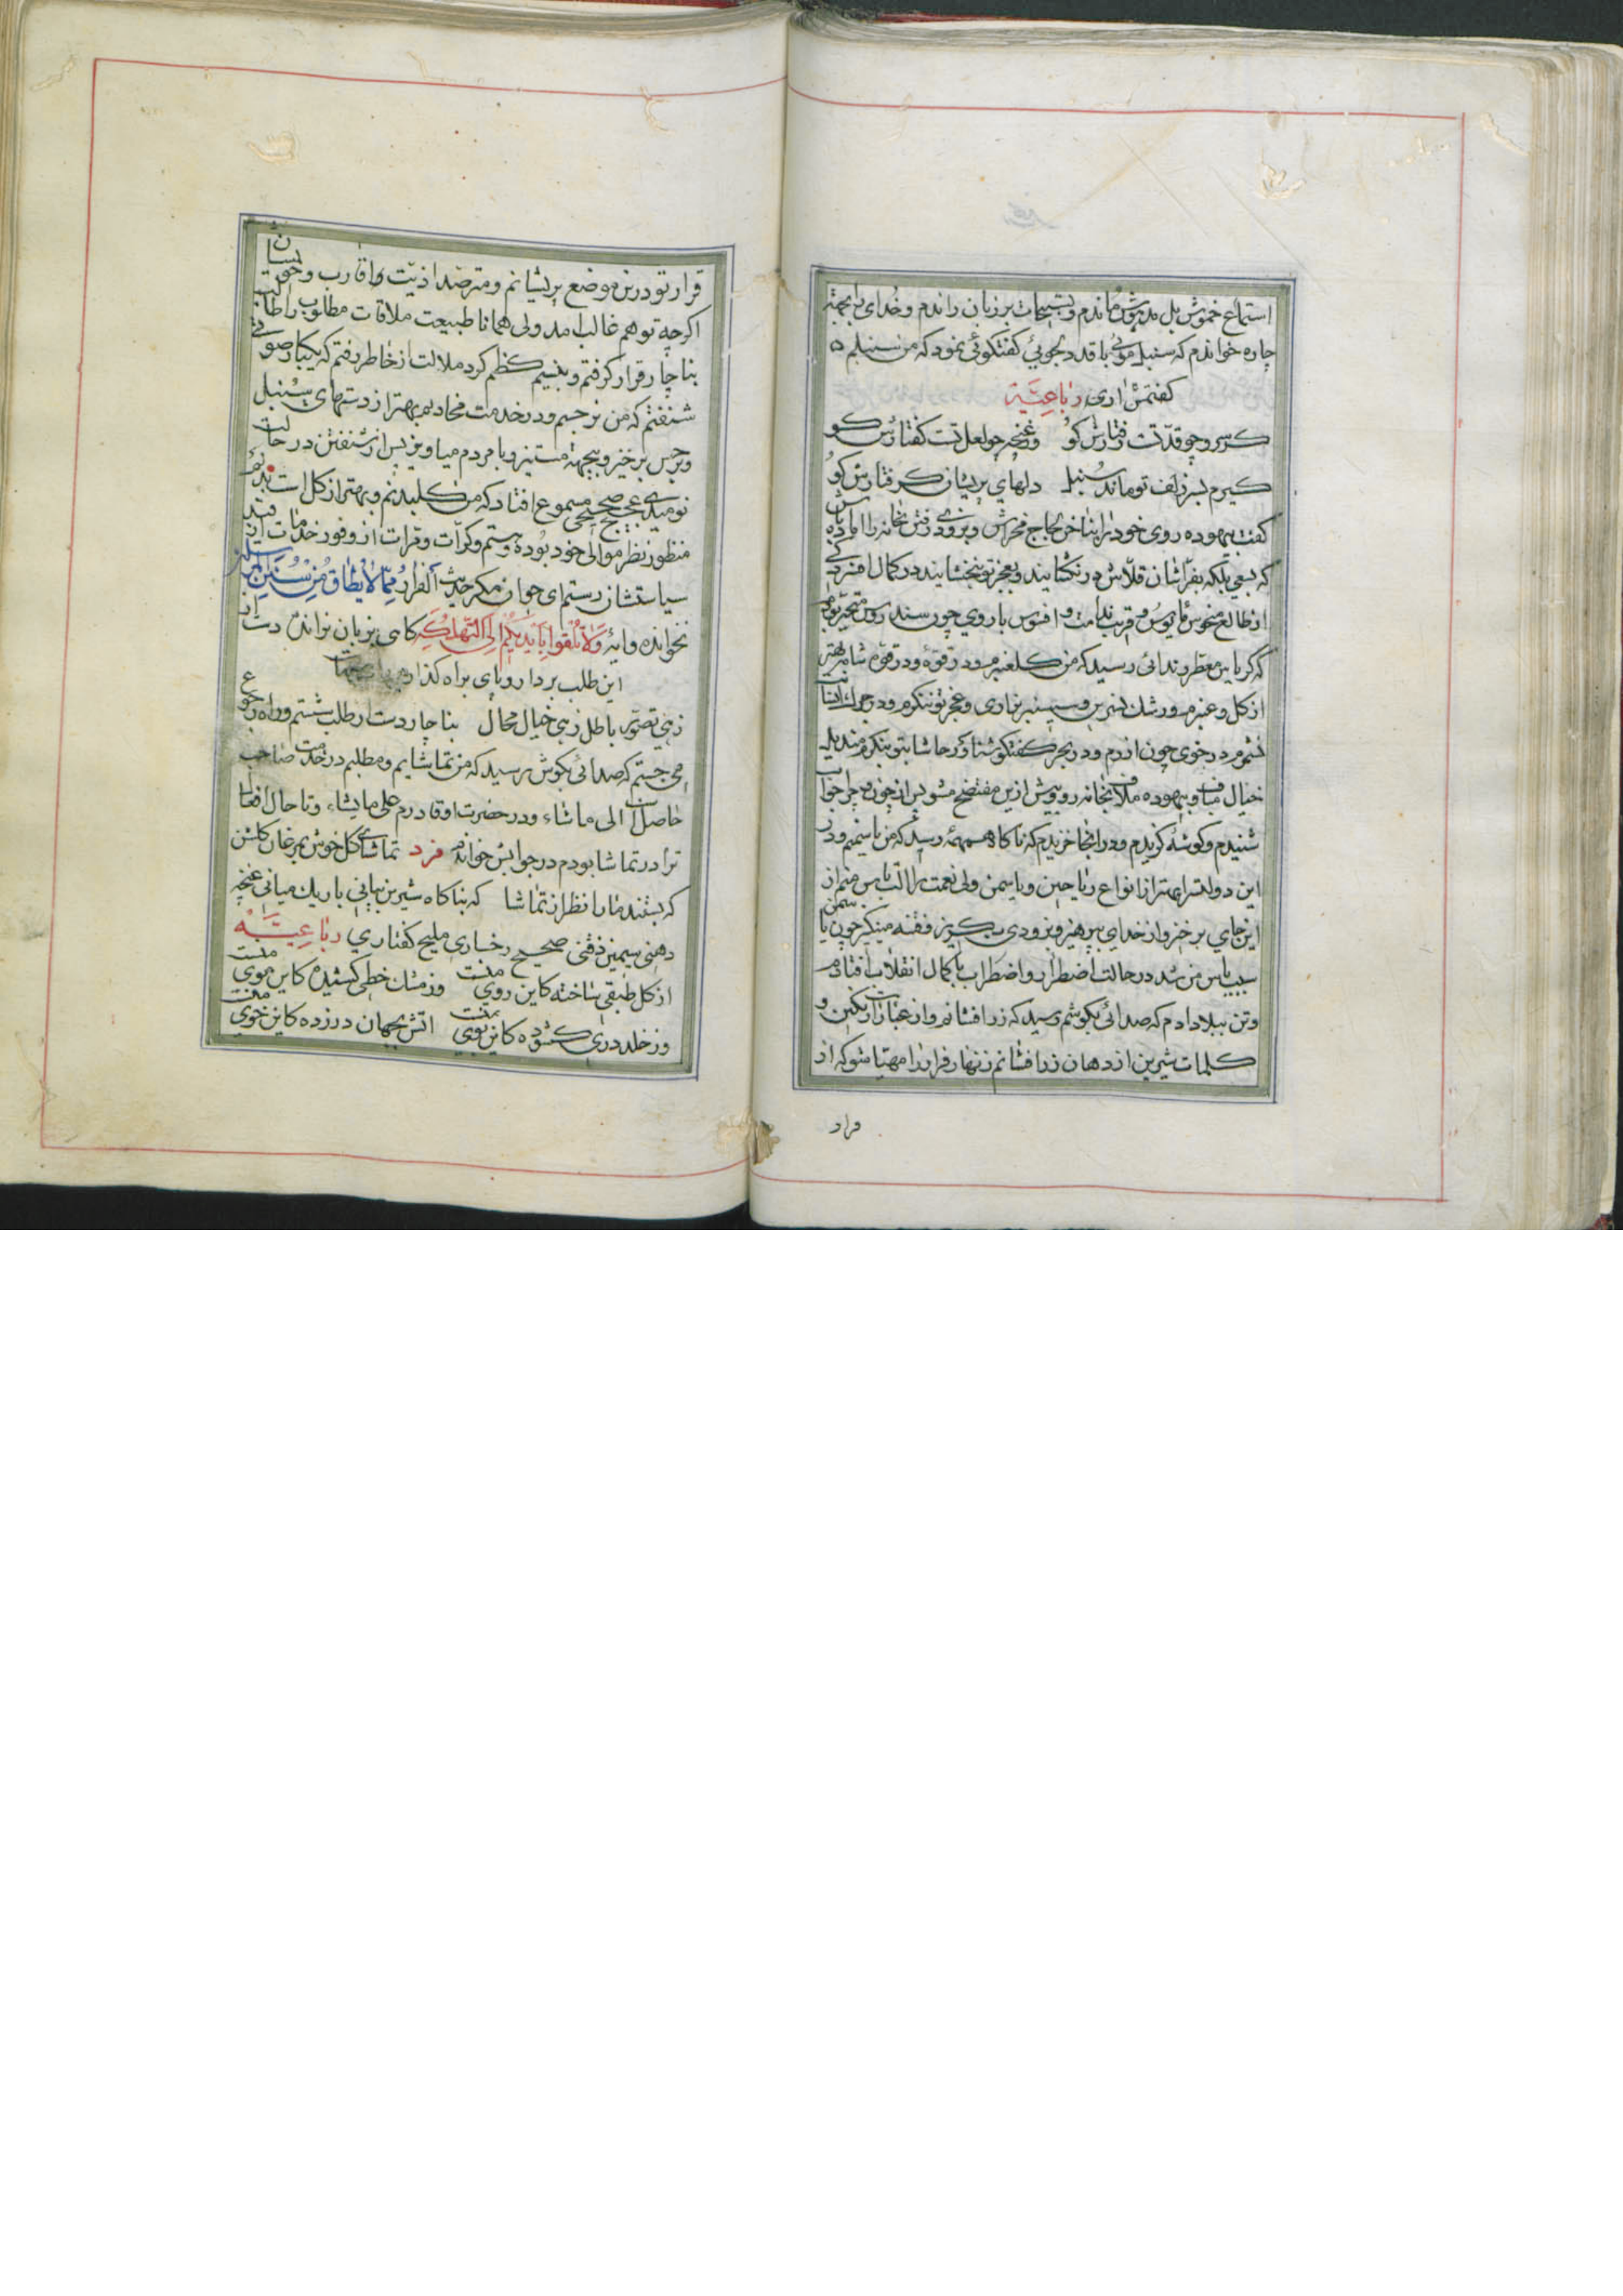 استماع خموش بل مدهوش ماندم و تسبیحات بر زبان راندم و خدای را بجهة
چاره خواندم که سنبل موئی با قد دلجوئی کفتکوئی نمود که من سنبلم
کفتمش اری رباعیّة
کر سرو چو قدّتست رفتارش کو وغنچه چو لعل تست کفتارش کو
کیرم بسر زلف تو ماند سنبل دلهای پریشان کرفتارش کو
کفت بیهوده روی خود را بناخن لجاج مخراش و بزودی رفتن خانه را اماده باش
که بسعی بلکه بفرّاشان قلّاش در نکشایند و بعجز تو نبخشایند در کمال افسردکی
از طالع منحوس مایوس و قریب ندامت و افسوس با روی چون سندروس متحیّر بودم
که کرباس معطر وندائی رسید که من کلعنبرم و در قوّه شامه بهتر
از کل و عنبرم و رشك نسرین و سیسنبر بزاری و عجز تو ننکرم و در جرك
نشمرم در خوی چون اذرم و در بحر کفتکو شناور حاشا بتو بنکرم
خیال مباف و بیهوده ملاف بخانه رو و بیش ازین مفتضح مشو پس از چون و چرا جواب
شنیدم و کوشهٔ کزیدم و در انجا خزیدم که ناکاه همهمهٔ رسید که من یاسمنم و در
این دولتسرا بهتر از انواع ریاحین و یاسمن ولی نعمت را التباس منم از
این جای بر خیز و از خدای بپرهیز و بزودی بکریز و فتنه مینکیز چون یاسمن
سبب یاس من شد در حالت اضطرار و اضطراب با کمال انقلاب افتادم
و تن ببلا دادم که صدائی بکوشم رسید که زر افشانم و از عبارات رنکین و
کلمات شیرین از دهان زر افشانم زنهار فرار را مهیّا شو که از
قرار
قرار تو درین موضع پریشانم و مترصد اذیّت و اقارب و خویشان
اکرچه توهم غالب امد ولی همانا طبیعت ملاقات مطلوب را طالب
بناچار قرار کرفتم و بنسیم کظم کرد ملالت از خاطر رفتم که یکبار صوتی
شنفتم که من نرجسم و در خدمت مخادیم بهتر از دستهای سنبل
و نرجس برخیز و بیجهة مستیز و با مردم میاویز پس از شنفتن در حالت
نومیدی عجیج صحیحی مسموع افتاد که من کلبدنم و بهتر از کل است بدنم
منظور نظر موالی خود بوده و هستم و کرّات و مرّات از وفور خدمات از قید
سیاستشان رستم ای جوان مکر حدیث الفرار ممّا لا یطاق من سنن المرسلین
نخوانده و ایهٔ ولا تلقوا بایدیکم الی التهلکة کاهی بر زبان نراندی دست از
این طلب بردار و پای براه کذار
زهی تصوّر باطل زهی خیال محال بناچار دست از طلب شستم و راه رجوع
می جستم که صدائی بکوش رسید که من تماشایم و مطلبم در خدمت صاحب
حاصل الی ماشاء و در حضرت او قادرم علی مایشاء و تا حال افعال
ترا در تماشا بودم در جوابش خواندم فرد تماشای کل خوش بمرغان کلشن
که بستند مارا نظر از تماشا که بناکاه شیرین بیانی باریك میانی غنچه
دهنی سیمین ذقنی صحیح رخساری ملیح کفتاری رباعیّة
از کل طبقی ساخته کاین روی منست وز مشك خطی کشیده کاین موی منست
وز خلد دری کشوده کاین بوی منست اتش بجهان در زده کاین خوی منست